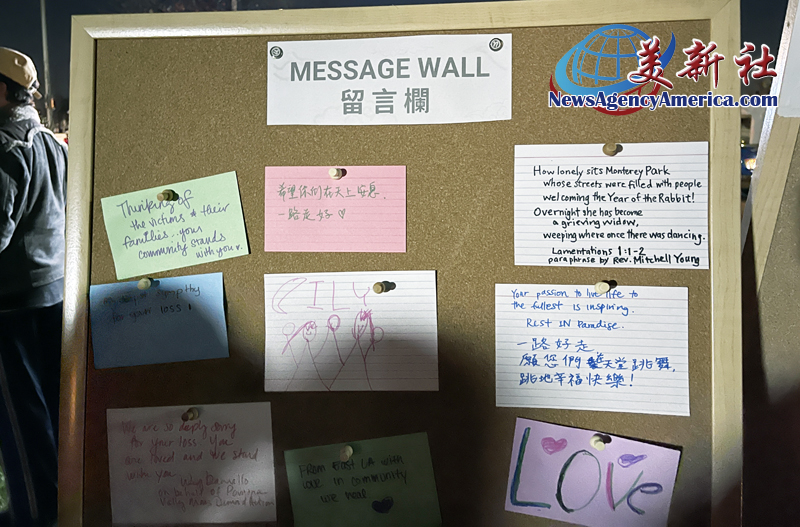 MESSAGE WALL
留言欄
美新社
NewsAgencyAmerica.com
Thinking of
the victims & their
families...your
community stands
with you
希望你们在天上安息.
一路走好♡
How lonely sits Monterey Park
whose streets were filled with people
welcoming the Year of the Rabbit!
Overnight she has become
a grieving widow,
weeping where once there was dancing.
Lamentations 1:1-2
paraphrase by Rev. Mitchell Young
sympathy
for your loss
Your passion to live life to
the fullest is inspiring.
REST IN Paradise.
一路好走
願您們天堂跳舞,
跳地幸福快樂!
We are so deeply sorry
for your loss. You
are loved and we stand
with you
on behalf of Pomona
Valley
FROM East LA with
love in community
we heal
LOVE